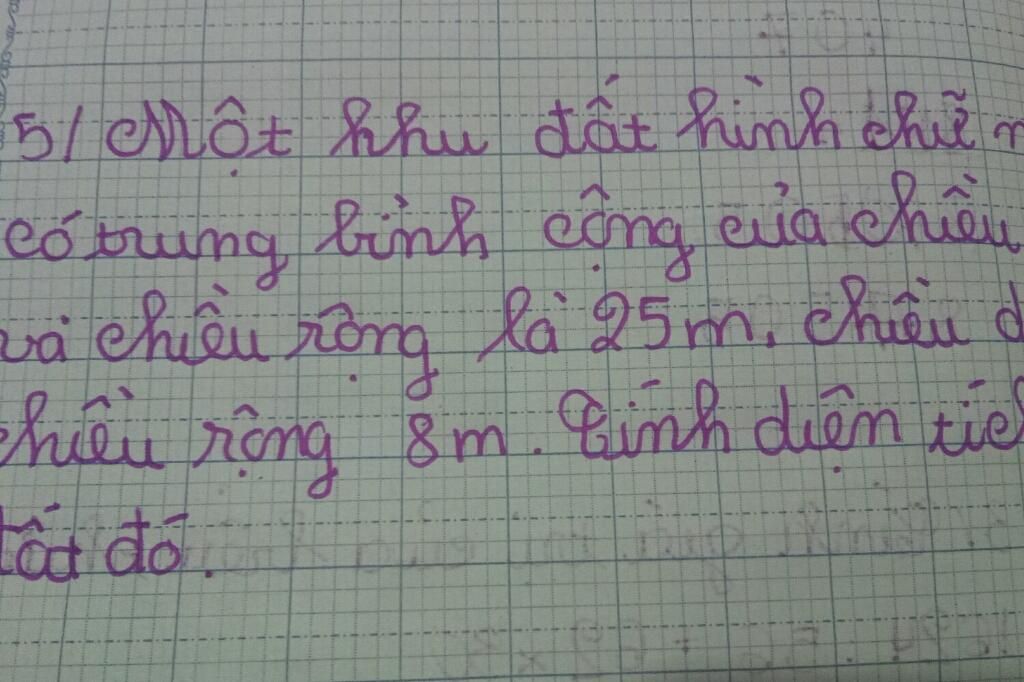 5/ Một khu đất hình chữ n
có trung bình cộng của chiều
và chiều rộng là 25m, chiều d
chiều rộng 8m. Tính diện tích
đất đó.